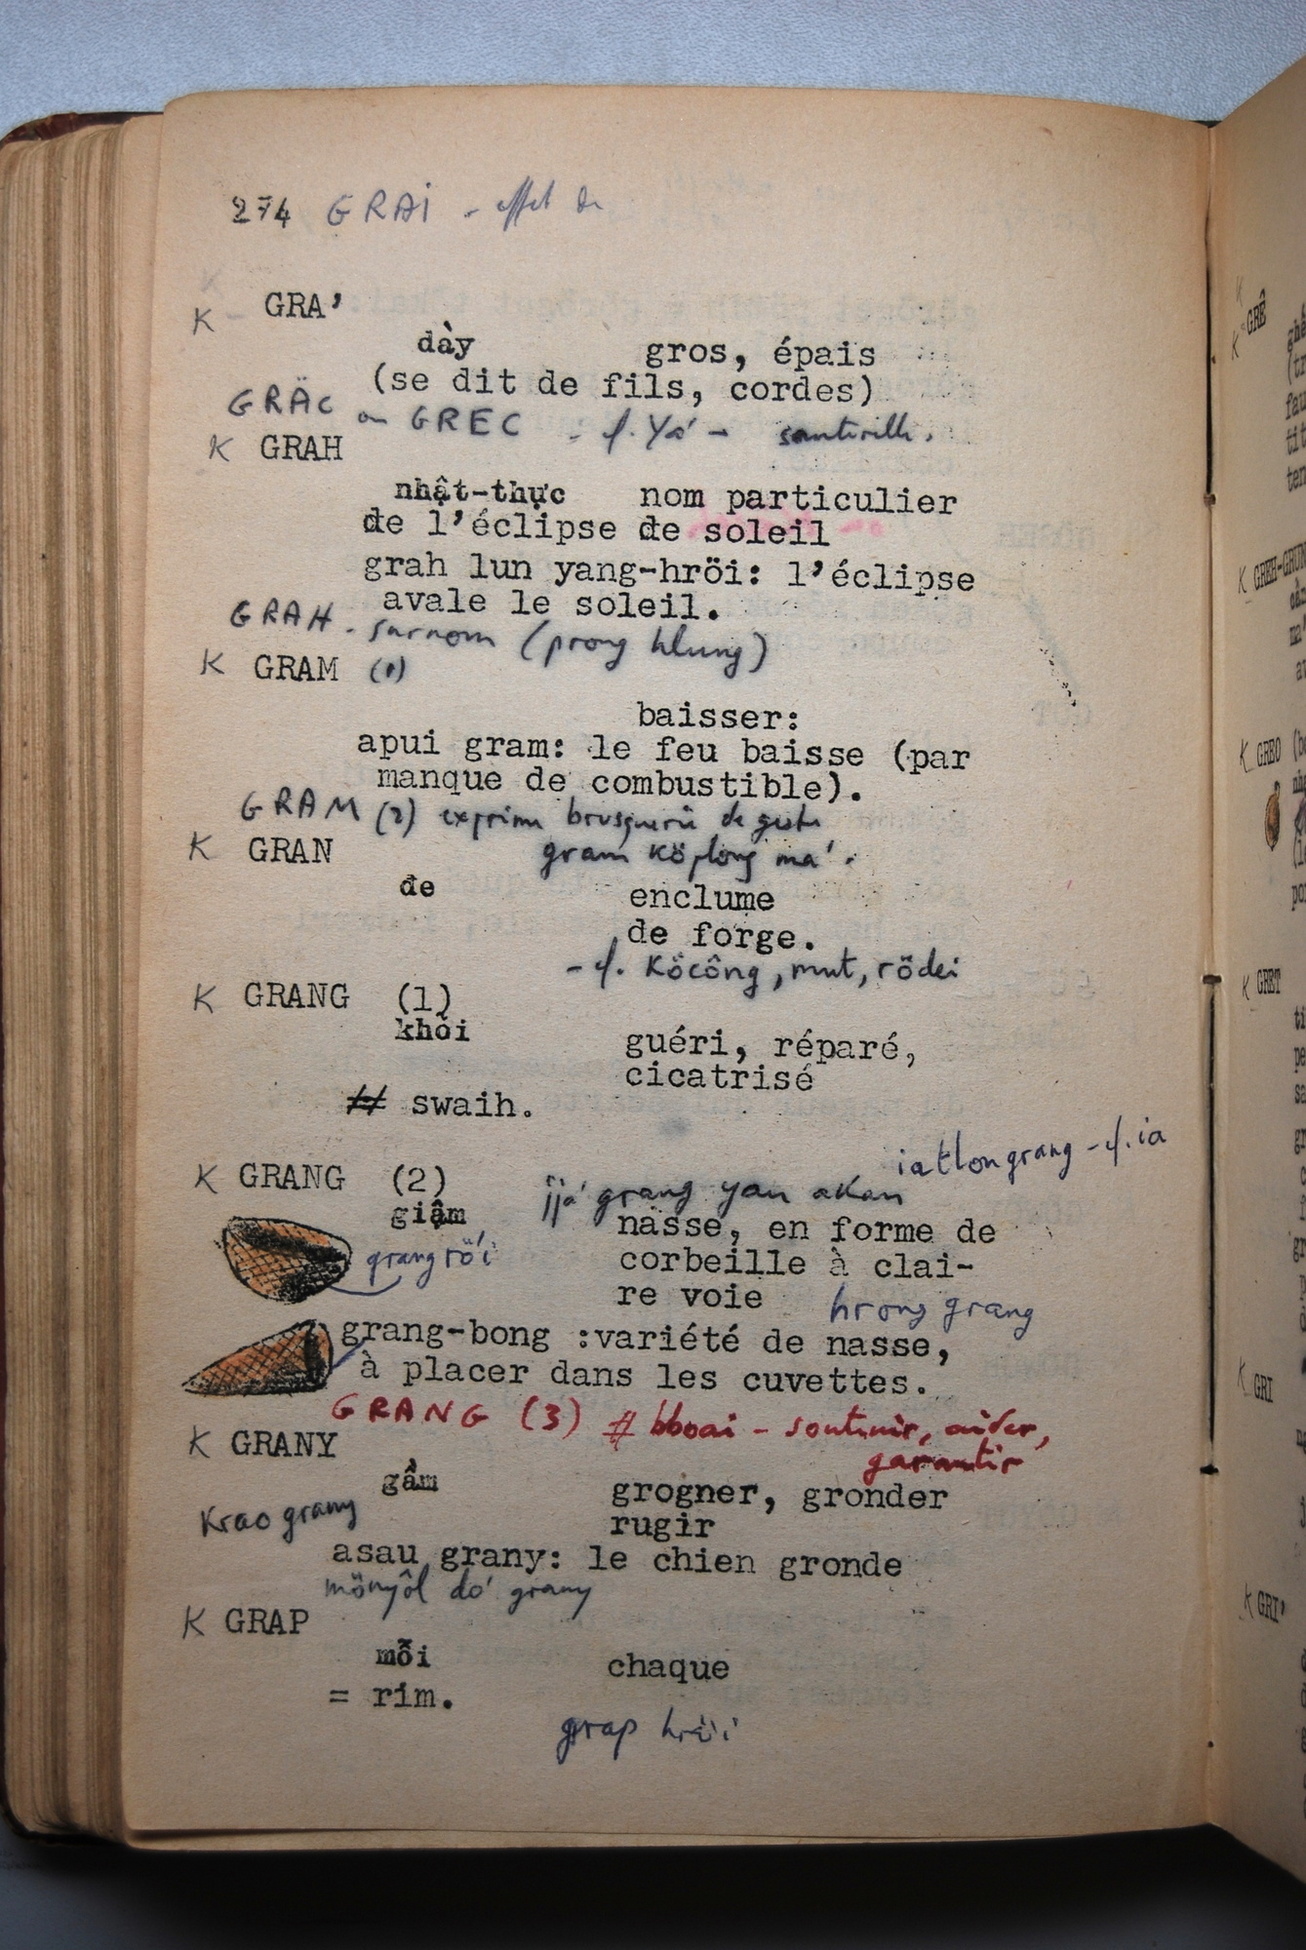 274 GRAI - effet de
K GRA'
dày gros, épais
(se dit de fils, cordes)
GRĂC ou GREC - cf. Ya' -
K GRAH
nhật-thực nom particulier
de l'éclipse de soleil
grah lun yang-hröi: l'éclipse
avale le soleil.
GRAH - surnom (prong hlung)
K GRAM (1)
baisser:
apui gram: le feu baisse (par
manque de combustible).
GRAM (2) exprime brusquerie de geste
K GRAN gram köplong ma'.
đe enclume
de forge.
- cf. Köcông, mut, rödei
K GRANG (1)
khỏi guéri, réparé,
cicatrisé
# swaih.
iatlongrang - cf. ia
K GRANG (2) jja' grang yau akan
giậm nasse, en forme de
grang rö'i corbeille à clai-
re voie hrong grang
grang-bong :variété de nasse,
à placer dans les cuvettes.
GRANG (3) # bboai - soutenir, aider,
garantir
K GRANY
gầm grogner, gronder
Krao grany rugir
asau grany: le chien gronde
mönyôl do' grany
K GRAP
mỗi chaque
= rim.
grap hröi
K GRÊ
K GREH-GRUN
K GREO
K GRET
K GRI
K GRI'